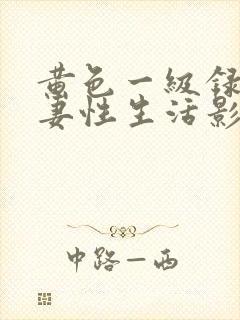 黄色一級録
妻性生活影
中路一西